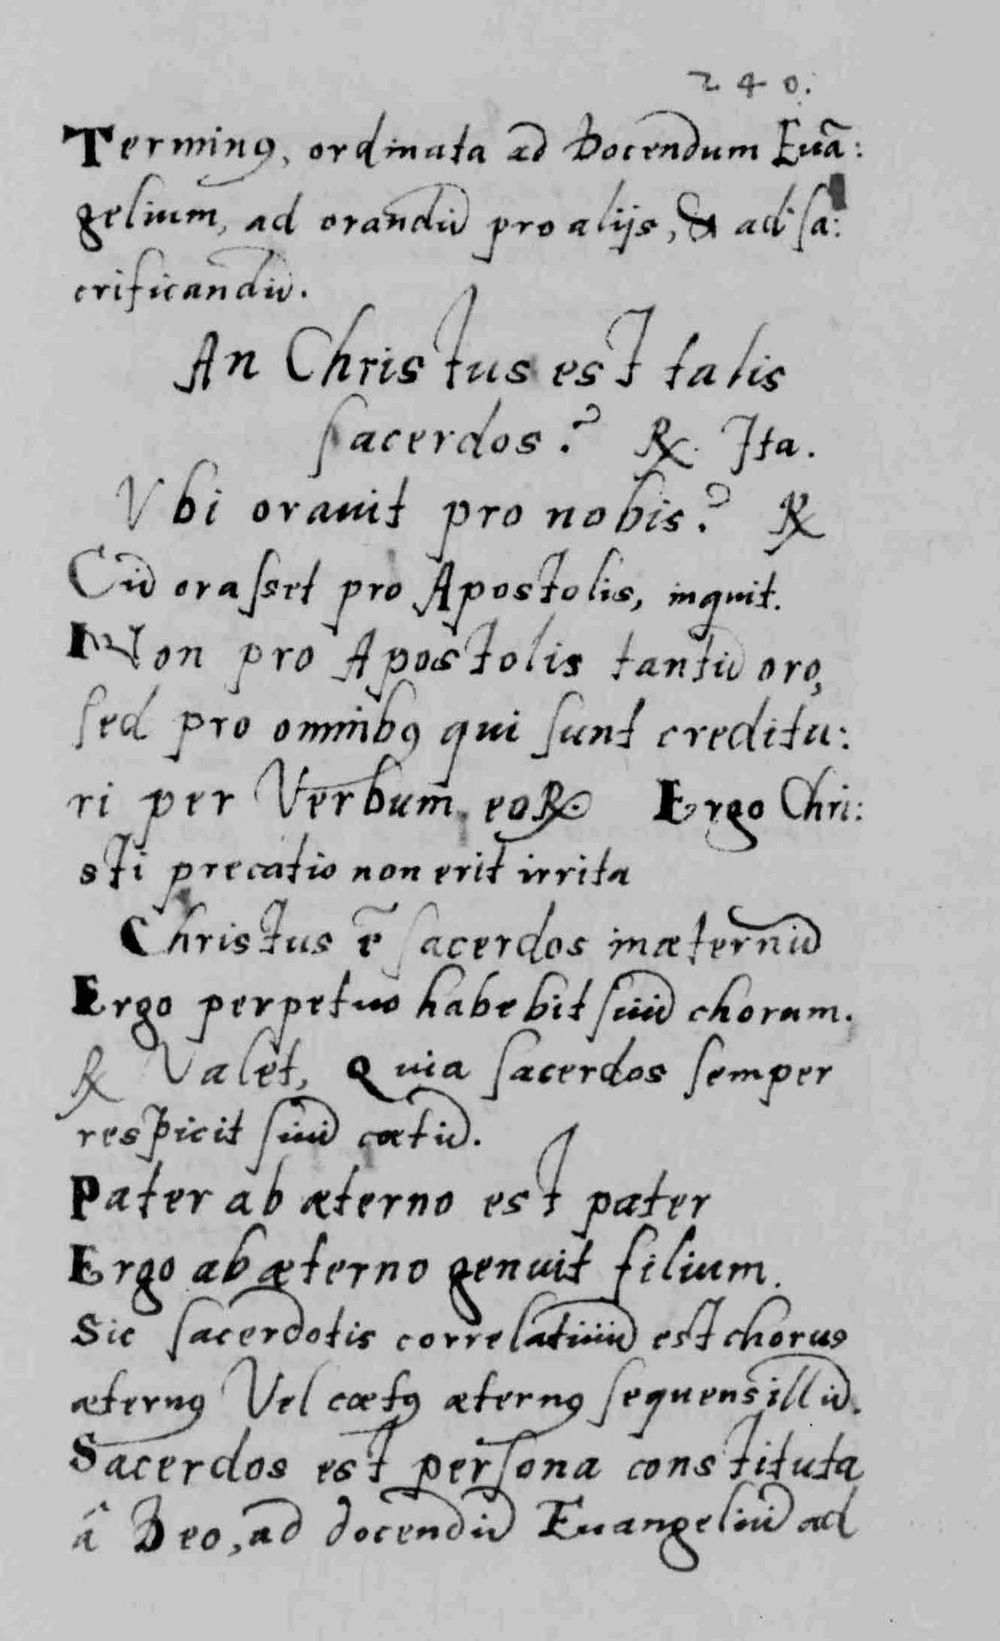 240.
Terminꝰ, ordinata ad Docendum Euā:
gelium, ad orandū pro alijs, & ad sa:
crificandū.
An Christus est talis
sacerdos? ℞. Ita.
Vbi orauit pro nobis? ℞
Cū orasset pro Apostolis, inquit.
Non pro Apostolis tantū oro,
sed pro omnibꝰ qui sunt creditu:
ri per Verbum eoꝝ Ergo Chri:
sti precatio non erit irrita
Christus ē sacerdos in æternū
Ergo perpetuo habebit suū chorum.
℞ Valet, Quia sacerdos semper
respicit suū cœtū.
Pater ab æterno est pater
Ergo ab æterno genuit filium.
Sic sacerdotis correlatiuū est chorus
æternꝰ Vel cœtꝰ æternꝰ sequens illū.
Sacerdos est persona constituta
â Deo, ad docendū Euangeliū ad